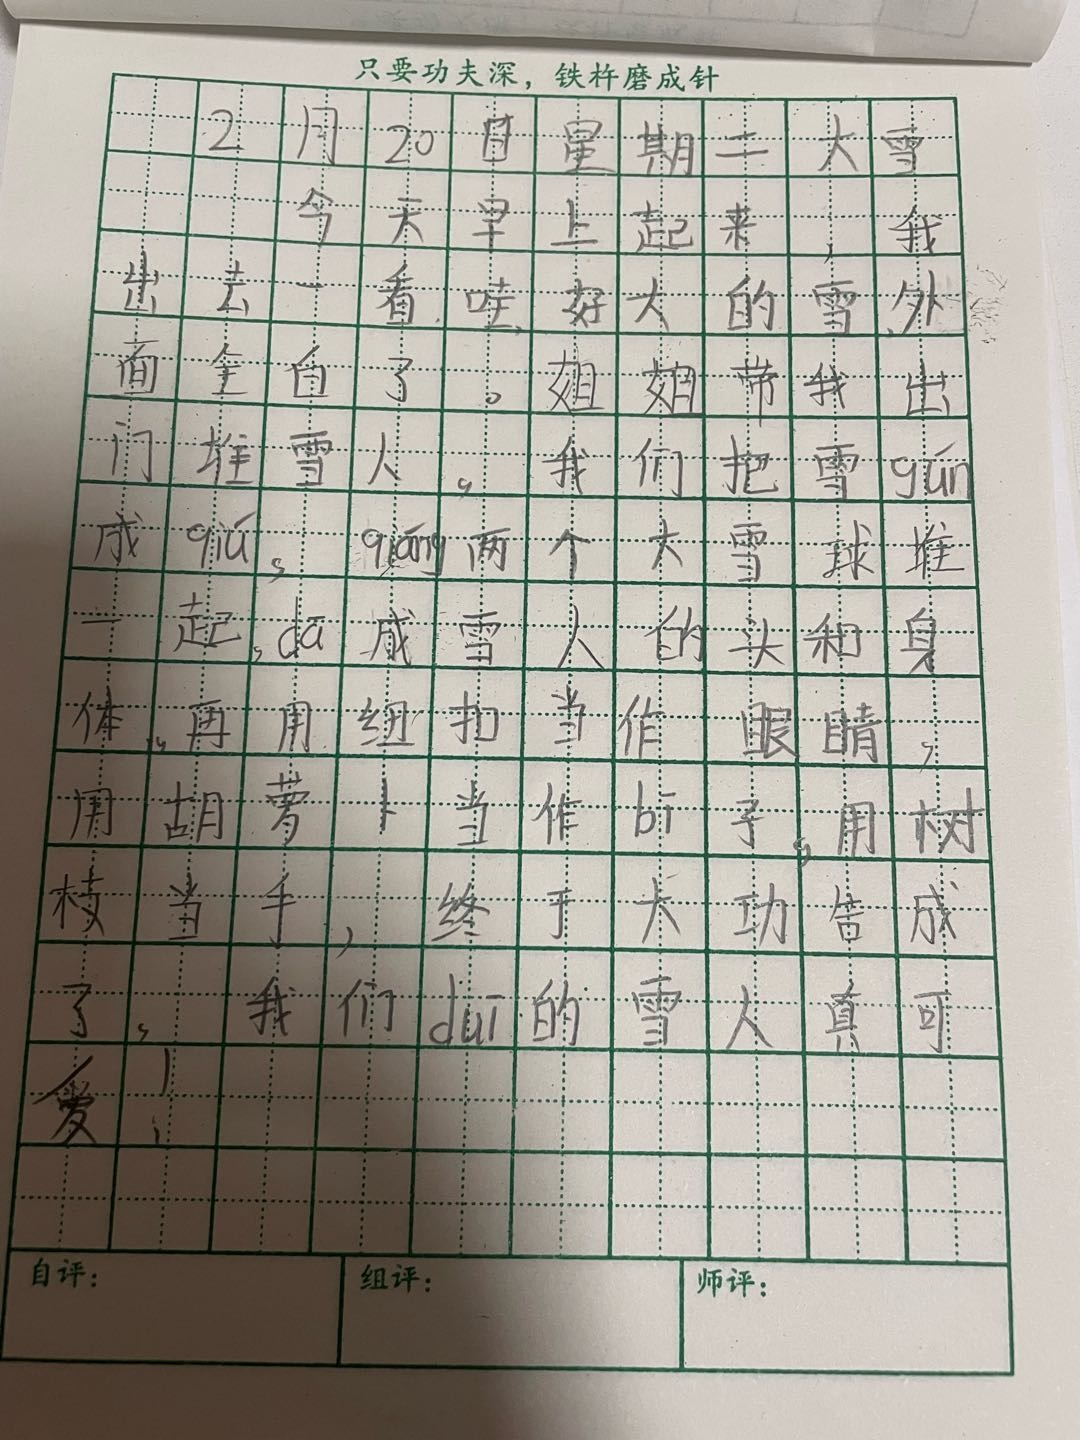 只要功夫深，铁杵磨成针
2月20日星期二大雪
今天早上起来，我
出去一看，哇，好大的雪，外
面全白了。姐姐带我出
门堆雪人，我们把雪gún
成qiú，qiáng两个大雪球堆
一起，dā成雪人的头和身
体，再用纽扣当作眼睛，
用胡萝卜当作bī子，用树
枝当手，终于大功告成
了，我们duī的雪人真可
爱！
自评：
组评：
师评：